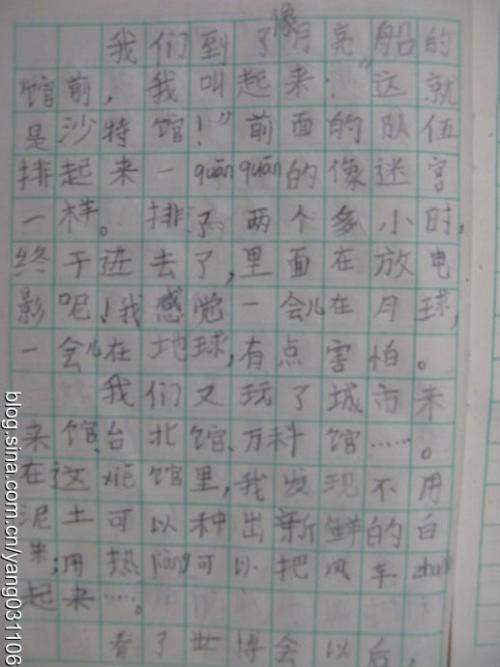 我们到了像月亮船的
馆前，我叫起来：“这就
是沙特馆！”前面的队伍
排起来一quānquān的像迷宫
一样。排了两个多小时，
终于进去了，里面在放电
影呢！我感觉一会儿在月球，
一会儿在地球，有点害怕。
我们又玩了城市未
来馆、台北馆、万科馆……。
在这xiē馆里，我发现不用
泥土可以种出新鲜的白
菜；用热jiāng可以把风车zhuàn
起来……。
看了世博会以后，
blog.sina.com.cn/yang031106